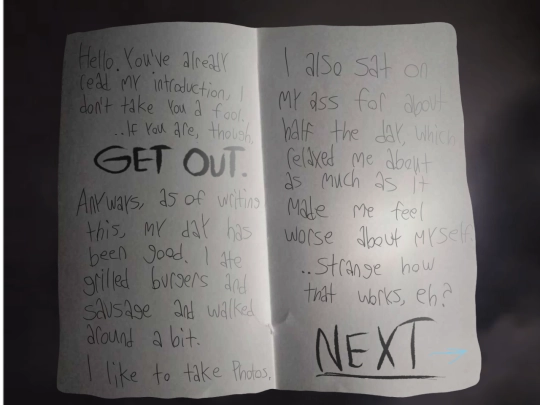 Hello. You've already
read my introduction, I
don't take you a fool.
..If you are, though.
GET OUT.
Anyways, as of writing
this, my day has
been good. I ate
grilled burgers and
sausage and walked
around a bit.
I like to take Photos.
I also sat on
my ass for about
half the day, which
relaxed me about
as much as it
made me feel
worse about myself
..Strange how
that works, eh?
NEXT